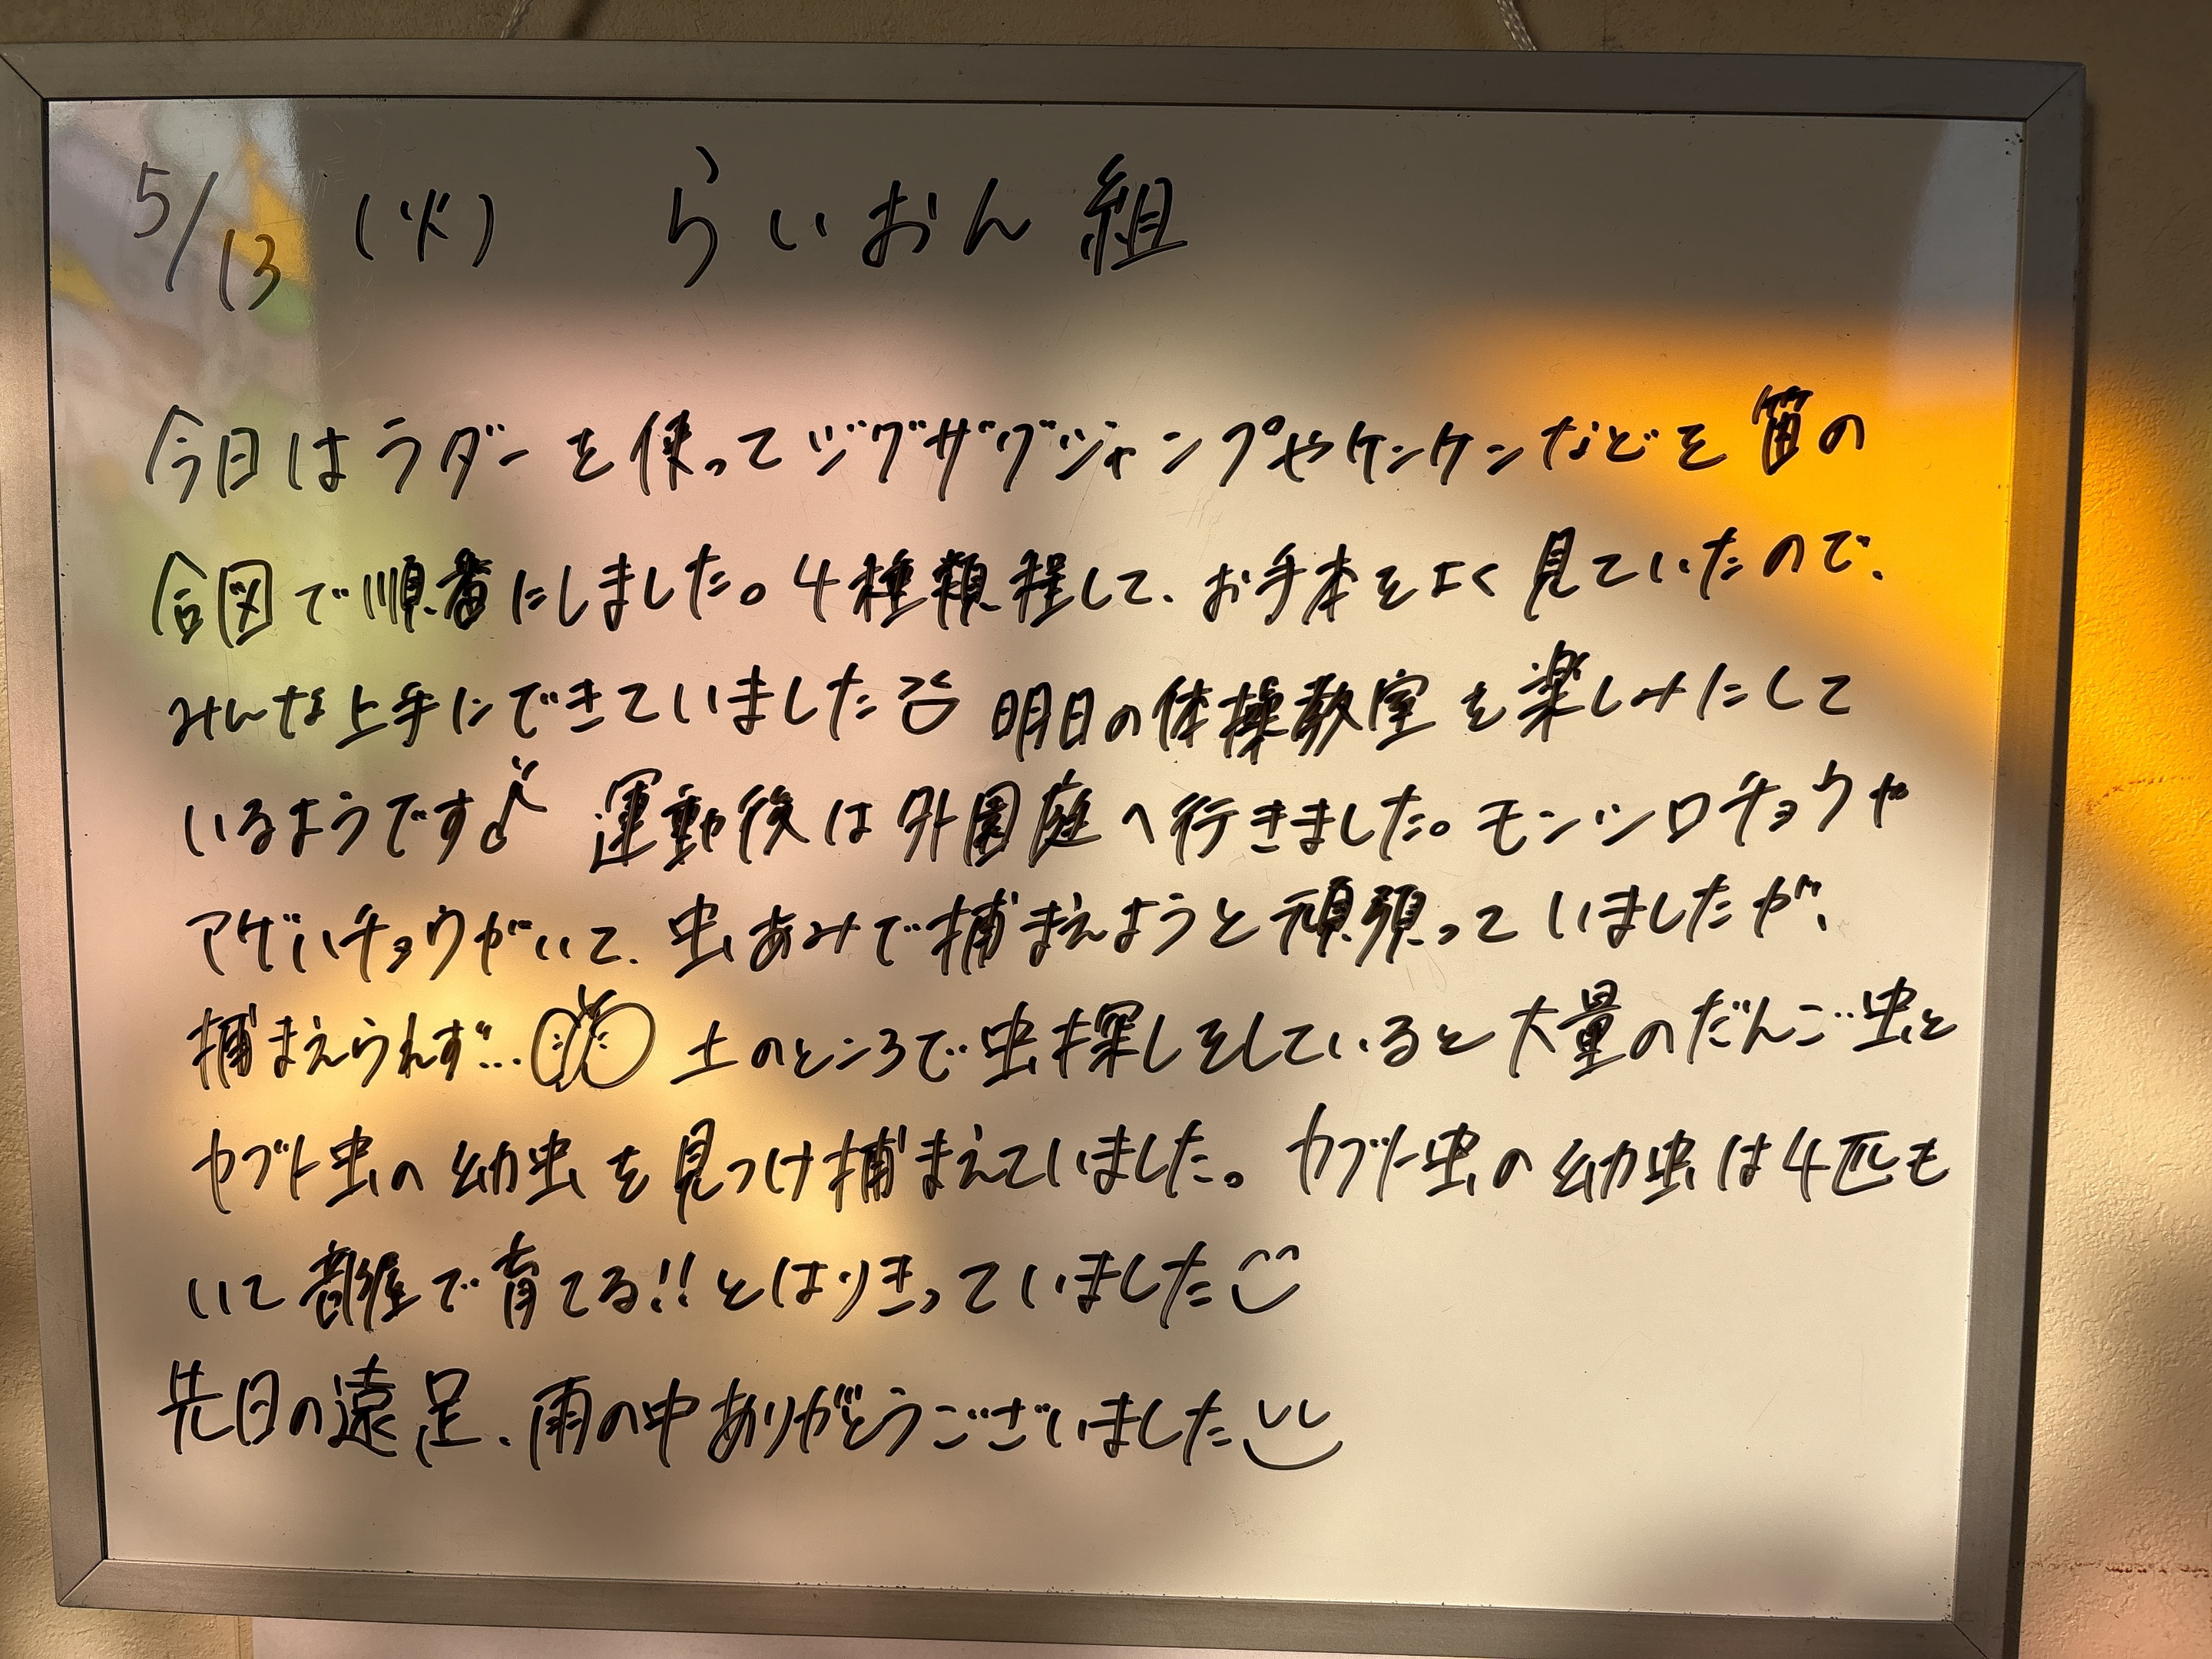 5/13 (火) らいおん組
今日はラダーを使ってジグザグジャンプやケンケンなどを笛の
合図で順番にしました。4種類程して、お手本をよく見ていたので、
みんな上手にできていました 明日の体操教室を楽しみにして
いるようです♪ 運動後は外園庭へ行きました。モンシロチョウや
アゲハチョウがいて、虫あみで捕まえようと頑張っていましたが、
捕まえられず… 土のところで虫探しをしていると大量のだんご虫と
カブト虫の幼虫を見つけ捕まえていました。カブト虫の幼虫は4匹も
いて部屋で育てる!!とはりきっていました
先日の遠足、雨の中ありがとうございました